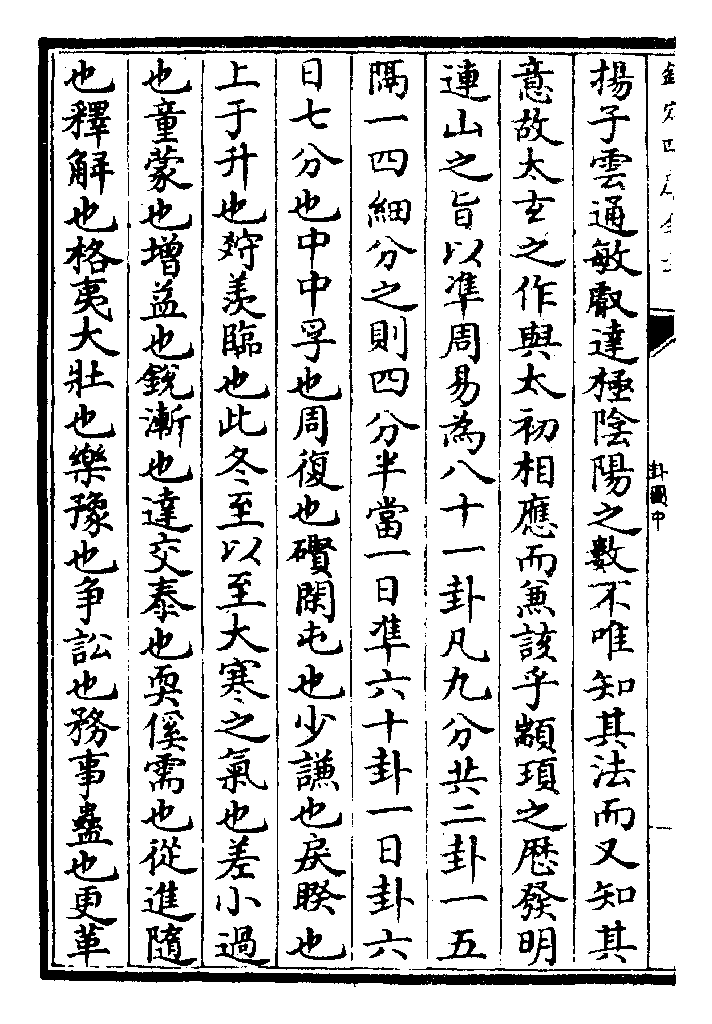 揚子雲通敏叡達極陰陽之數不唯知其法而又知其
意故太玄之作與太初相應而兼該乎顓頊之歷發明
連山之旨以準周易為八十一卦凡九分共二卦一五
隔一四細分之則四分半當一日準六十卦一日卦六
日七分也中中孚也周復也礥閑屯也少謙也戾睽也
上于升也羨臨也此冬至以至大寒之氣也差小過
也童蒙也增益也銳漸也達交泰也耎傒需也從進隨
也釋解也格夷大壯也樂豫也爭訟也務事蠱也更革
卦圖中